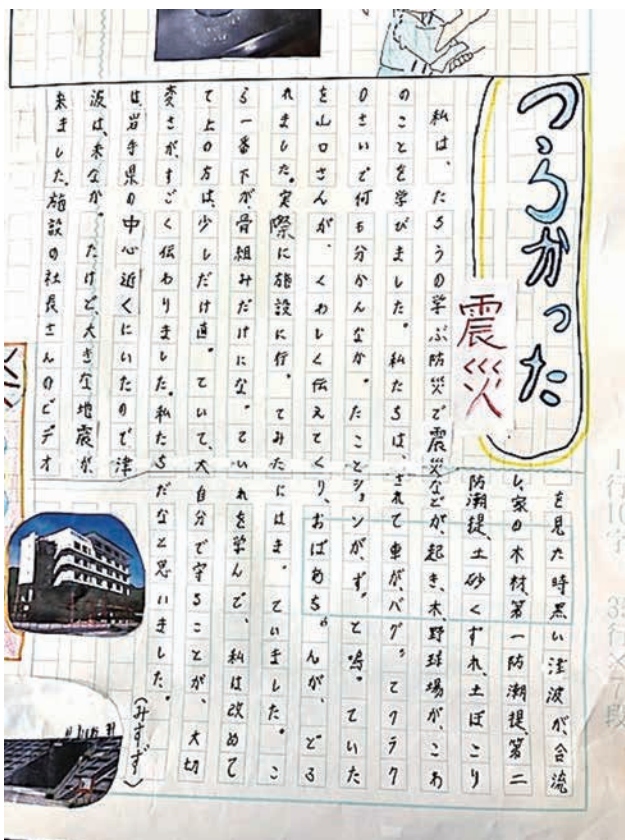 つらかった
震災
私は、たろうの学ぶ防災で震災
のことを学びました。私たちは、
0さいで何も分かんなかったこと
を山口さんが、くわしく伝えてく
れました。実際に施設に行ってみた
ら一番下が、骨組みだけになってい
て上の方は、少しだけ直っていて、大
変さが、すごく伝わりました。私たち
は、岩手県の中心近くにいたので津
波は、来なかったけど、大きな地震が
来ました。施設の社長さんのビデオ
を見た時黒い津波が、合流
し、家の木材、第一防潮提、第二
防潮提、土砂くずれ、土ぼこり
などが、起き、木、野球場が、こわ
されて車が、バグってクラク
ションが、ずっと鳴っていた
り、おばあちゃんが、どろ
にはまっていました。こ
れを学んで、私は改めて
自分で守ることが、大切
だなと思いました。
(みすず)
行10字 35行×7段